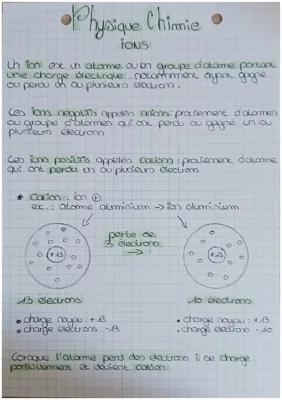 Physique Chimie
IONS
Un ion est un atome ou un groupe d'atome portant
une charge électrique, notamment ayant gagné
ou perdu un ou plusieurs électrons.
Les ions négatifs appelés anions: proviennent d'atomes
ou groupe d'atomes qui ont perdu ou gagné un ou
plusieurs électrons
Les ions positifs appelés cations: proviennent d'atome
qui ont perdu un ou plusieurs électrons
* Cation: ion +
ex.: atome aluminium → ion aluminium
perte de
3 électrons
→
+13
+13
13 électrons
10 électrons
• charge noyau: +13
• charge noyau: +13
• charge électrons: -13
• charge électrons -10
Lorsque l'atome perd des électrons il se charge
positivement et devient cation